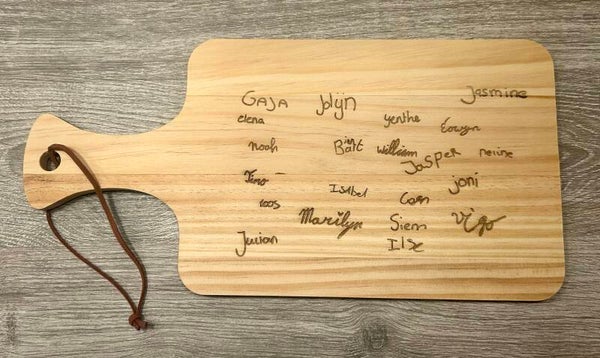 GAJA Jolijn Jasmine
elena yenthe Eowyn
noah Bart William Jasper nerine
Timo Isabel joni
roos Coen
Marilyn Siem Vigo
Jurian Ilse